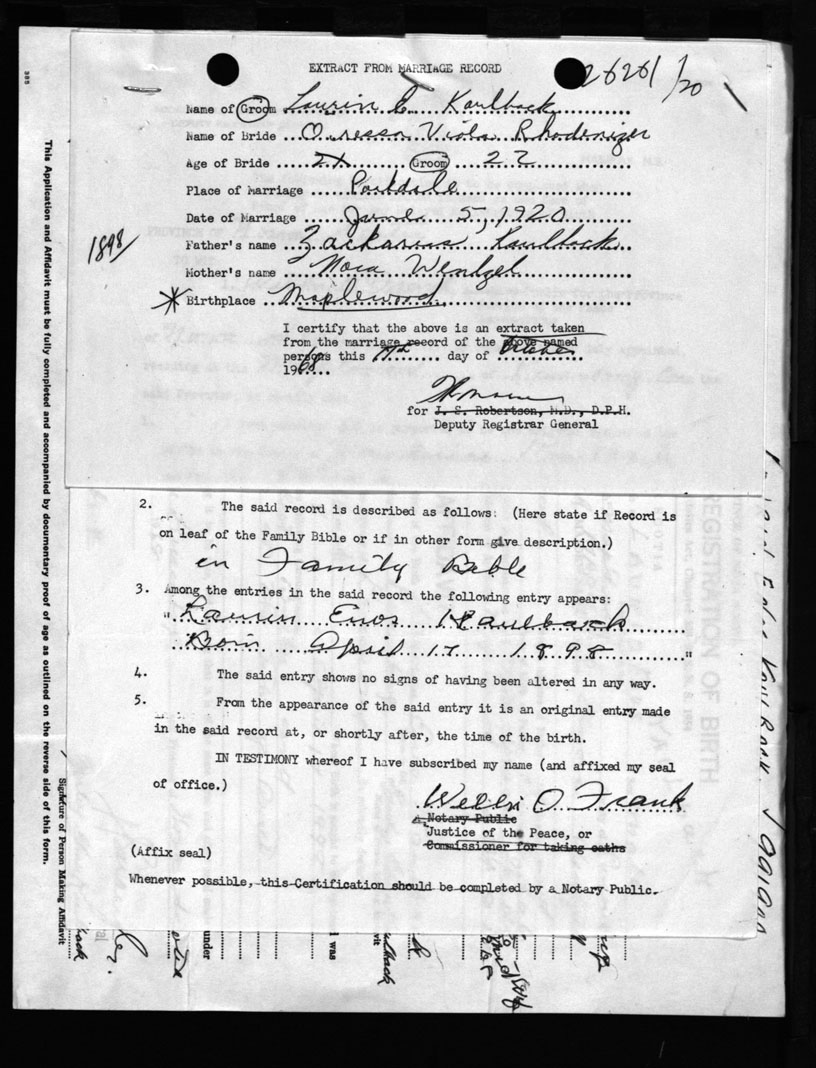 EXTRACT FROM MARRIAGE RECORD
26261/20
Name of Groom Laurin E Kaulback
Name of Bride Oressa Viola Rhodenizer
Age of Bride 21 Groom 22
Place of Marriage Parkdale
Date of Marriage 5, 1920
1898/
Father's name Zackarius Kaulback
Mother's name Nora Wentzel
* Birthplace Maplewood
I certify that the above is an extract taken
from the marriage record of the above named
persons this 17th day of
1968
for J. S. Robertson, M.D., D.P.H.
Deputy Registrar General
2. The said record is described as follows: (Here state if Record is
on leaf of the Family Bible or if in other form give description.)
in Family Bible
3. Among the entries in the said record the following entry appears:
" Laurin Enos Kaulback
Born April 17 1898 "
4. The said entry shows no signs of having been altered in any way.
5. From the appearance of the said entry it is an original entry made
in the said record at, or shortly after, the time of the birth.
IN TESTIMONY whereof I have subscribed my name (and affixed my seal
of office.)
Willis O. Frank
A Notary Public
Justice of the Peace, or
Commissioner for taking oaths
(Affix seal)
Whenever possible, this Certification should be completed by a Notary Public.
This Application and Affidavit must be fully completed and accompanied by documentary proof of age as outlined on the reverse side of this form.
Signature of Person Making Affidavit
under
I was
REGISTRATION OF BIRTH